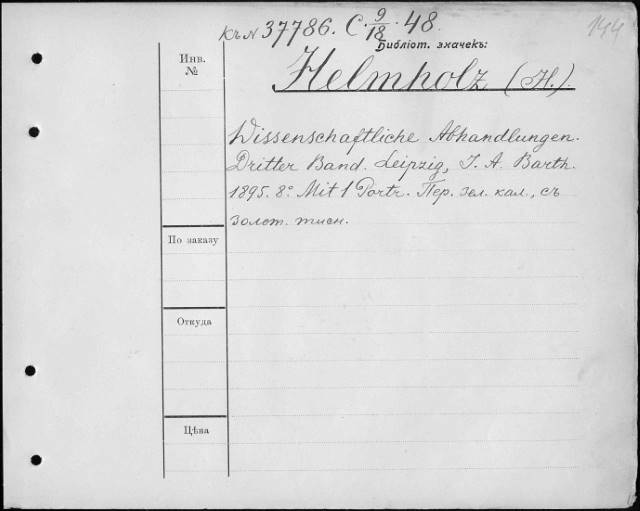 Къ N 37786. С. 9/18. 48.
144
Библіот. значекъ:
Инв.
№
Helmholz (H.)
Wissenschaftliche Abhandlungen.
Dritter Band. Leipzig, J. A. Barth.
1895. 8º. Mit 1 Portr. Пер. зел. кал., съ
золот. тисн.
По заказу
Откуда
Цѣна